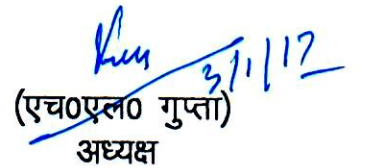 3/1/17
(एच0एल0 गुप्ता)
अध्यक्ष